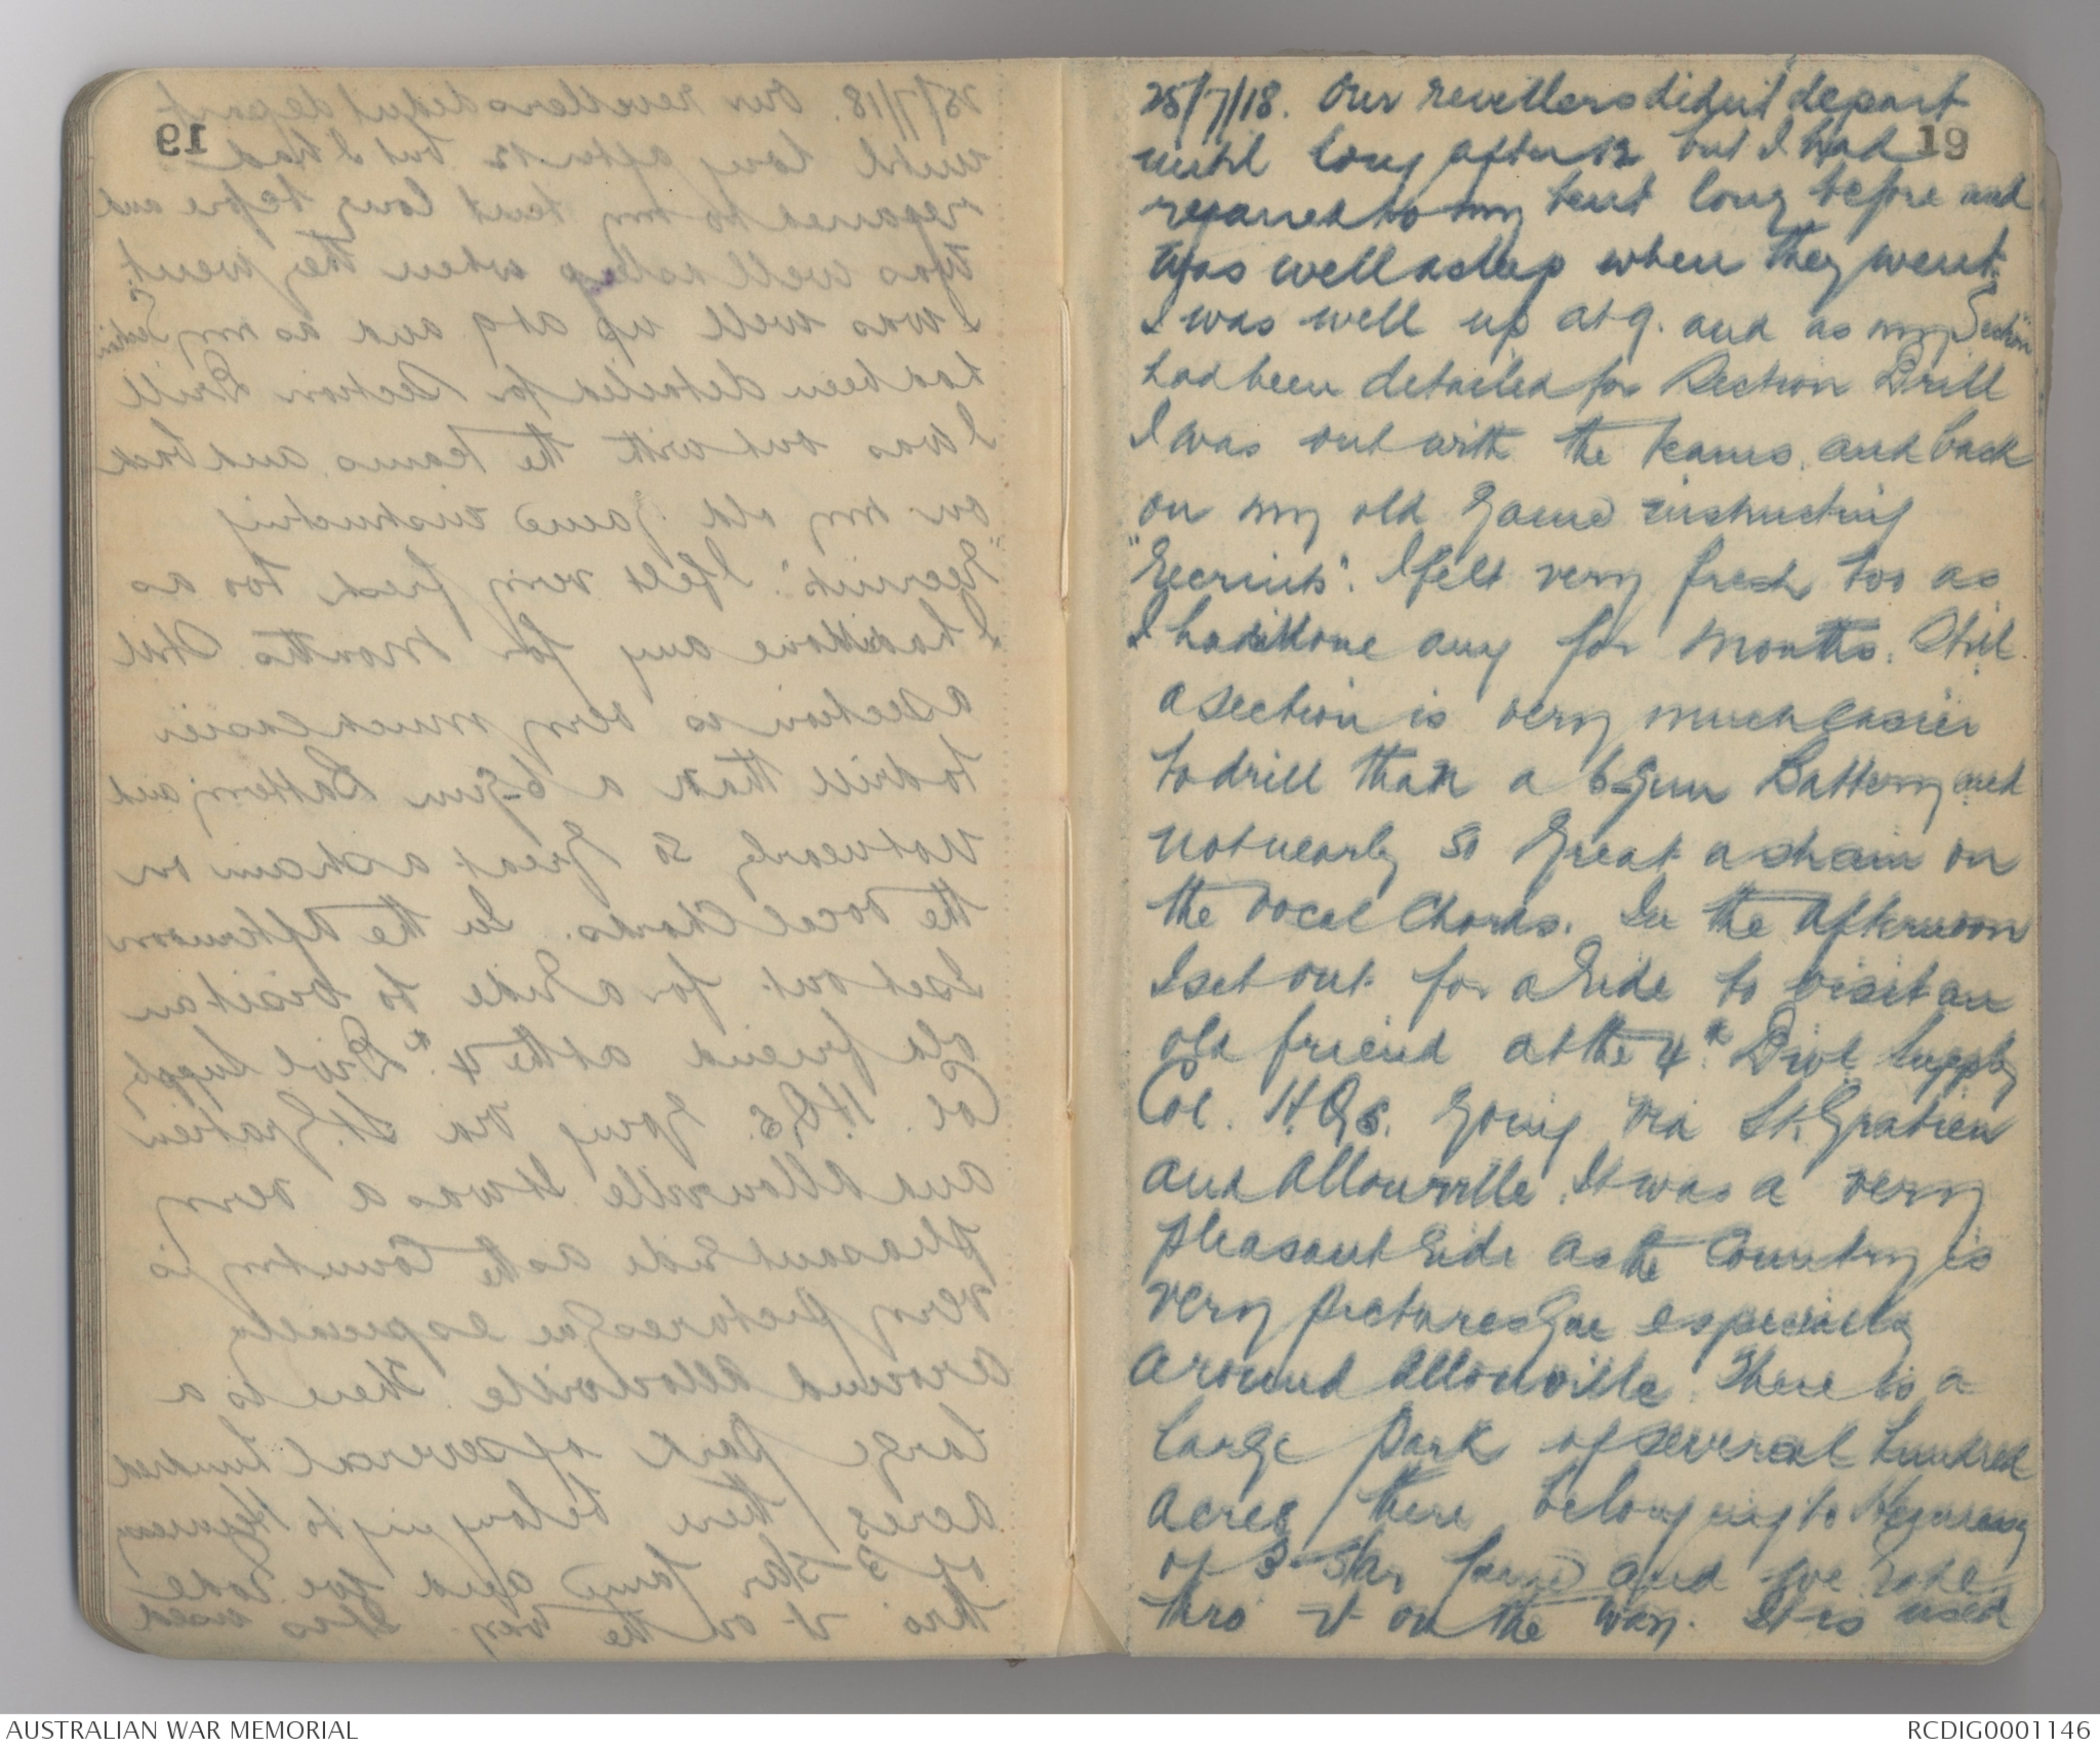 25/7/18. Our revellers didn't depart
19
until long after 12 but I had
repaired to my tent long before and
was well asleep when they went.
I was well up at 9. and as my Section
had been detailed for Section Drill
I was out with the teams, and back
on my old game instructing
"recruits". I felt very fresh too as
I hadn't done any for months. Still
a section is very much easier
to drill than a 6-gun Battery and
not nearly so great a strain on
the vocal Chords. In the afternoon
I set out for a ride to visit an
old friend at the 4th Divl Supply
Col. H.Qs. going via St. Gratien
and Allonville. It was a very
pleasant ride as the Country is
very picturesque especially
around Allonville. There is a
large park of several hundred
acres there belonging to Hennessy
of 3-Star fame and we rode
thro' it on the way. It is used
AUSTRALIAN WAR MEMORIAL
RCDIG0001146